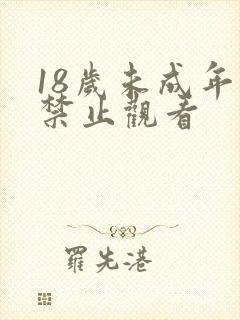 18歲未成年
禁止觀看
羅先港